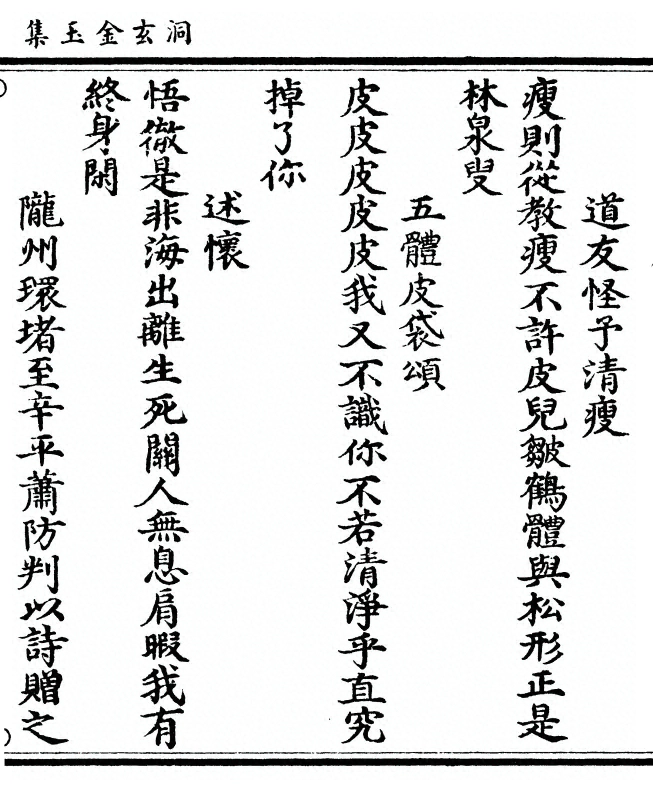 洞玄金玉集
道友怪予清瘦
瘦則從教瘦不許皮兒皺鶴體與松形正是
林泉叟
五體皮袋頌
皮皮皮皮皮我又不識你不若清淨乎直究
掉了你
述懷
悟徹是非海出離生死關人無息肩暇我有
終身閑
隴州環堵至辛平蕭防判以詩贈之